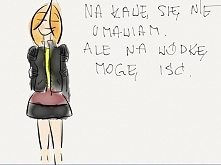 NA KAWĘ SIĘ NIE
UMAWIAM.
ALE NA WÓDKĘ
MOGĘ IŚĆ.